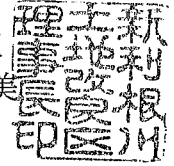 新利根川
土地改良区
理事長印
美